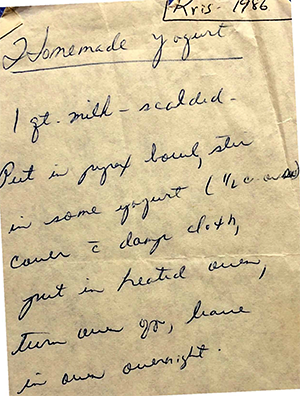 Kris - 1986
Homemade Yogurt
1 qt. milk - scalded -
Put in pyrex bowl, stir
in some yogurt (1/2 c. or so)
cover c̄ damp cloth,
put in heated oven,
turn oven off, leave
in oven overnight.